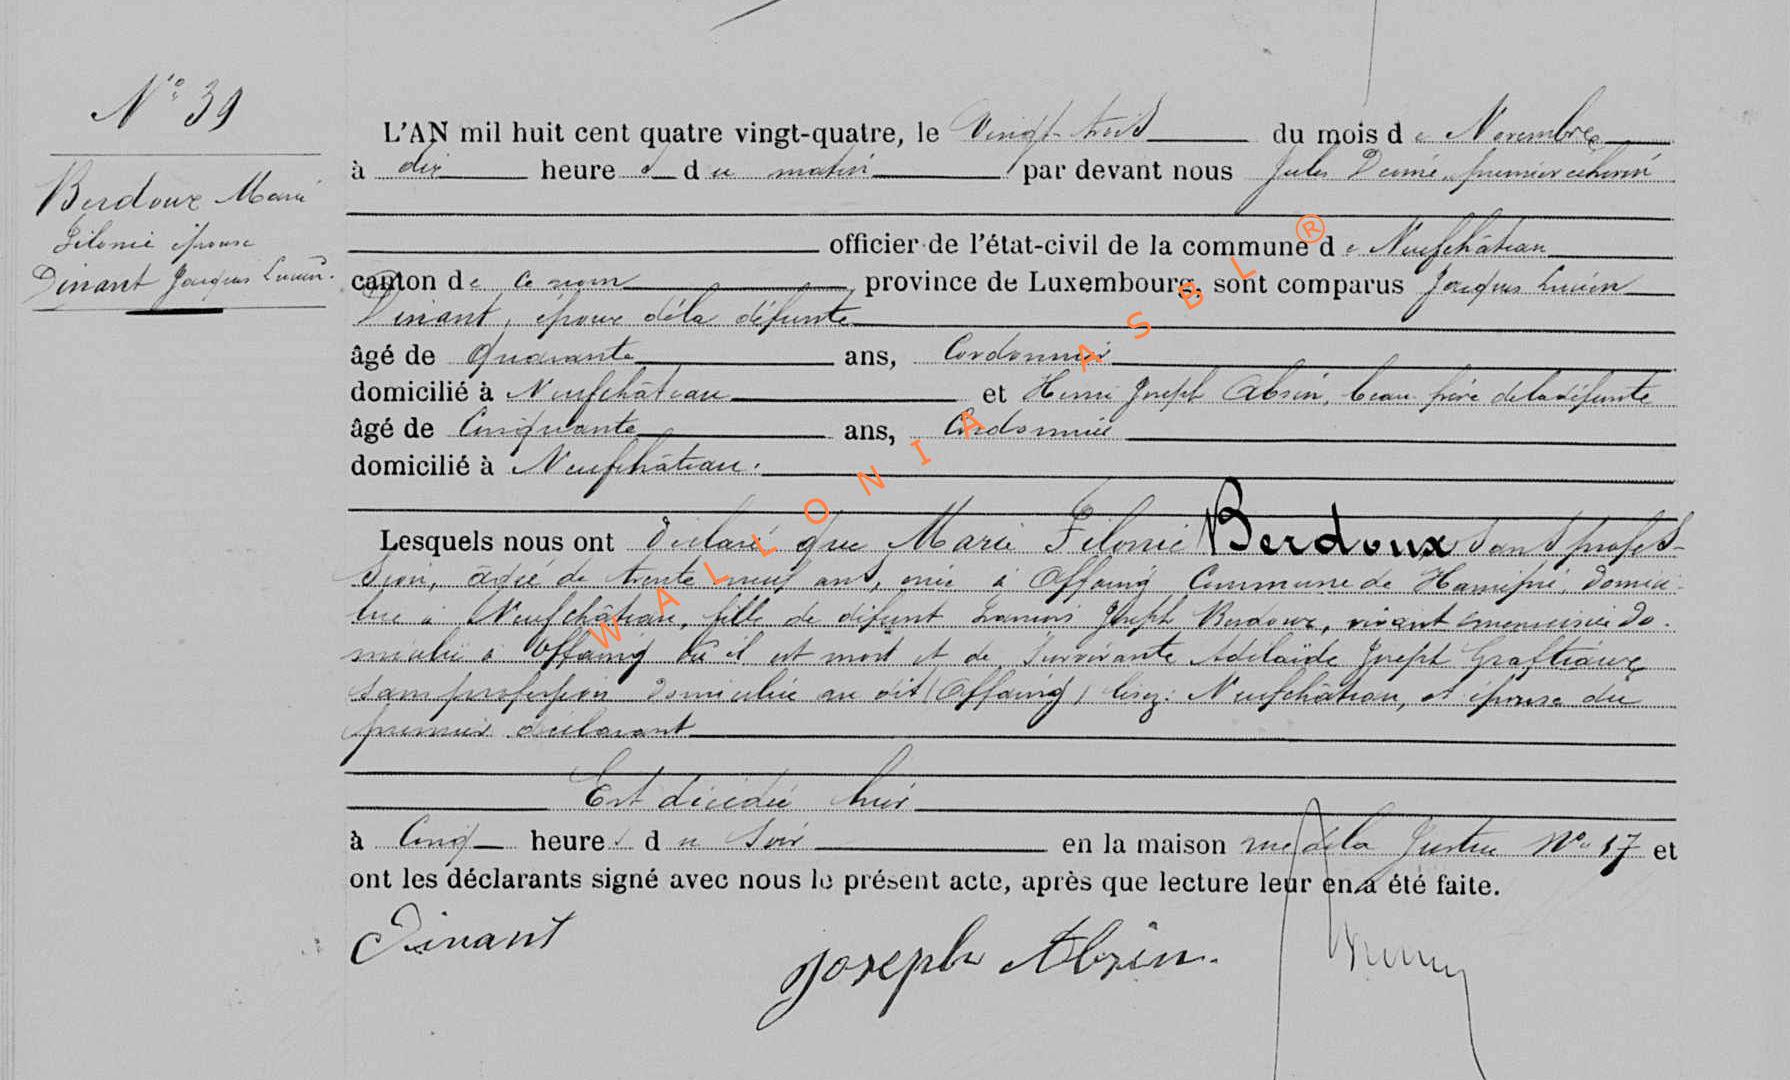 N° 39
Berdoux Marie
Filonie épouse
Dinant Jacques Lucien.
L'AN mil huit cent quatre vingt-quatre, le vingt-trois du mois de Novembre
à dix heures du matin par devant nous Jules premier échevin
officier de l'état-civil de la commune de Neufchâteau
canton de ce nom, province de Luxembourg, sont comparus Jacques Lucien
Dinant, époux de la défunte
âgé de quarante ans, Cordonnier
domicilié à Neufchâteau et Henri Joseph Absin, beau frère de la défunte
âgé de Cinquante ans, Cordonnier
domicilié à Neufchâteau.
Lesquels nous ont déclaré que Marie Filonie Berdoux sans profes-
sion, âgée de trente neuf ans, née à Offaing Commune de Hamipré, domici-
liée à Neufchâteau, fille de défunt Joseph Berdoux, vivant menuisier do-
micilié à Offaing où il est mort et de survivante Adelaïde Joseph
sans profession domiciliée au dit (Offaing) lisez: Neufchâteau, et épouse du
premier déclarant
Est décédée hier
à Cinq heures du soir en la maison rue de la Justice N° 17 et
ont les déclarants signé avec nous le présent acte, après que lecture leur en a été faite.
Dinant
Joseph Absin.
WALLONIA ASBL ®